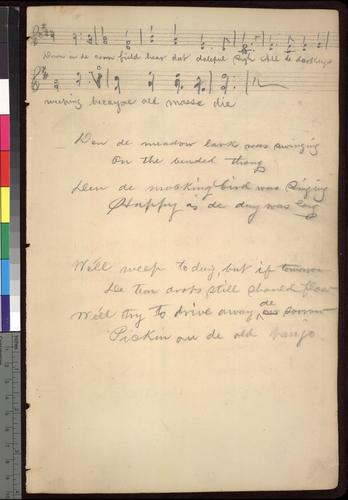 Down in de corn field hear dat doleful Sigh All de darkeys
weeping because old massa die
Den de meadow lark was swinging
On the bended thong
Den de mocking bird was singing
Happy as de day was long
We'll weep today, but if tomorrow
De tear drops still should flow
We'll try to drive away de sorrow
Pickin on de old banjo.